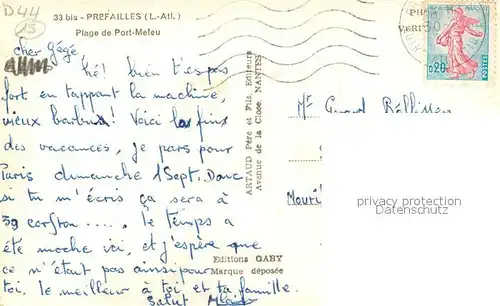 D44
15
33 bis - PREFAILLES (L.-Atl.)
Plage de Port-Meleu
cher Gégé
hé! bien t'es pas
fort en tappant la machine,
vieux barbu! Voici la fin
des vacances, je pars pour
Paris dimanche 1 Sept. Donc
si tu m'écris ça sera à
59 ..... le temps a
été moche ici, et j'espère que
ce n'était pas ainsi pour
toi. le meilleur à toi et ta famille.
Salut
Editions GABY
Marque déposée
ARTAUD Père et Fils, Editeurs
Avenue de la Close, NANTES
PH
VERIT
0,20
POSTES
Mr
privacy protection
Datenschutz